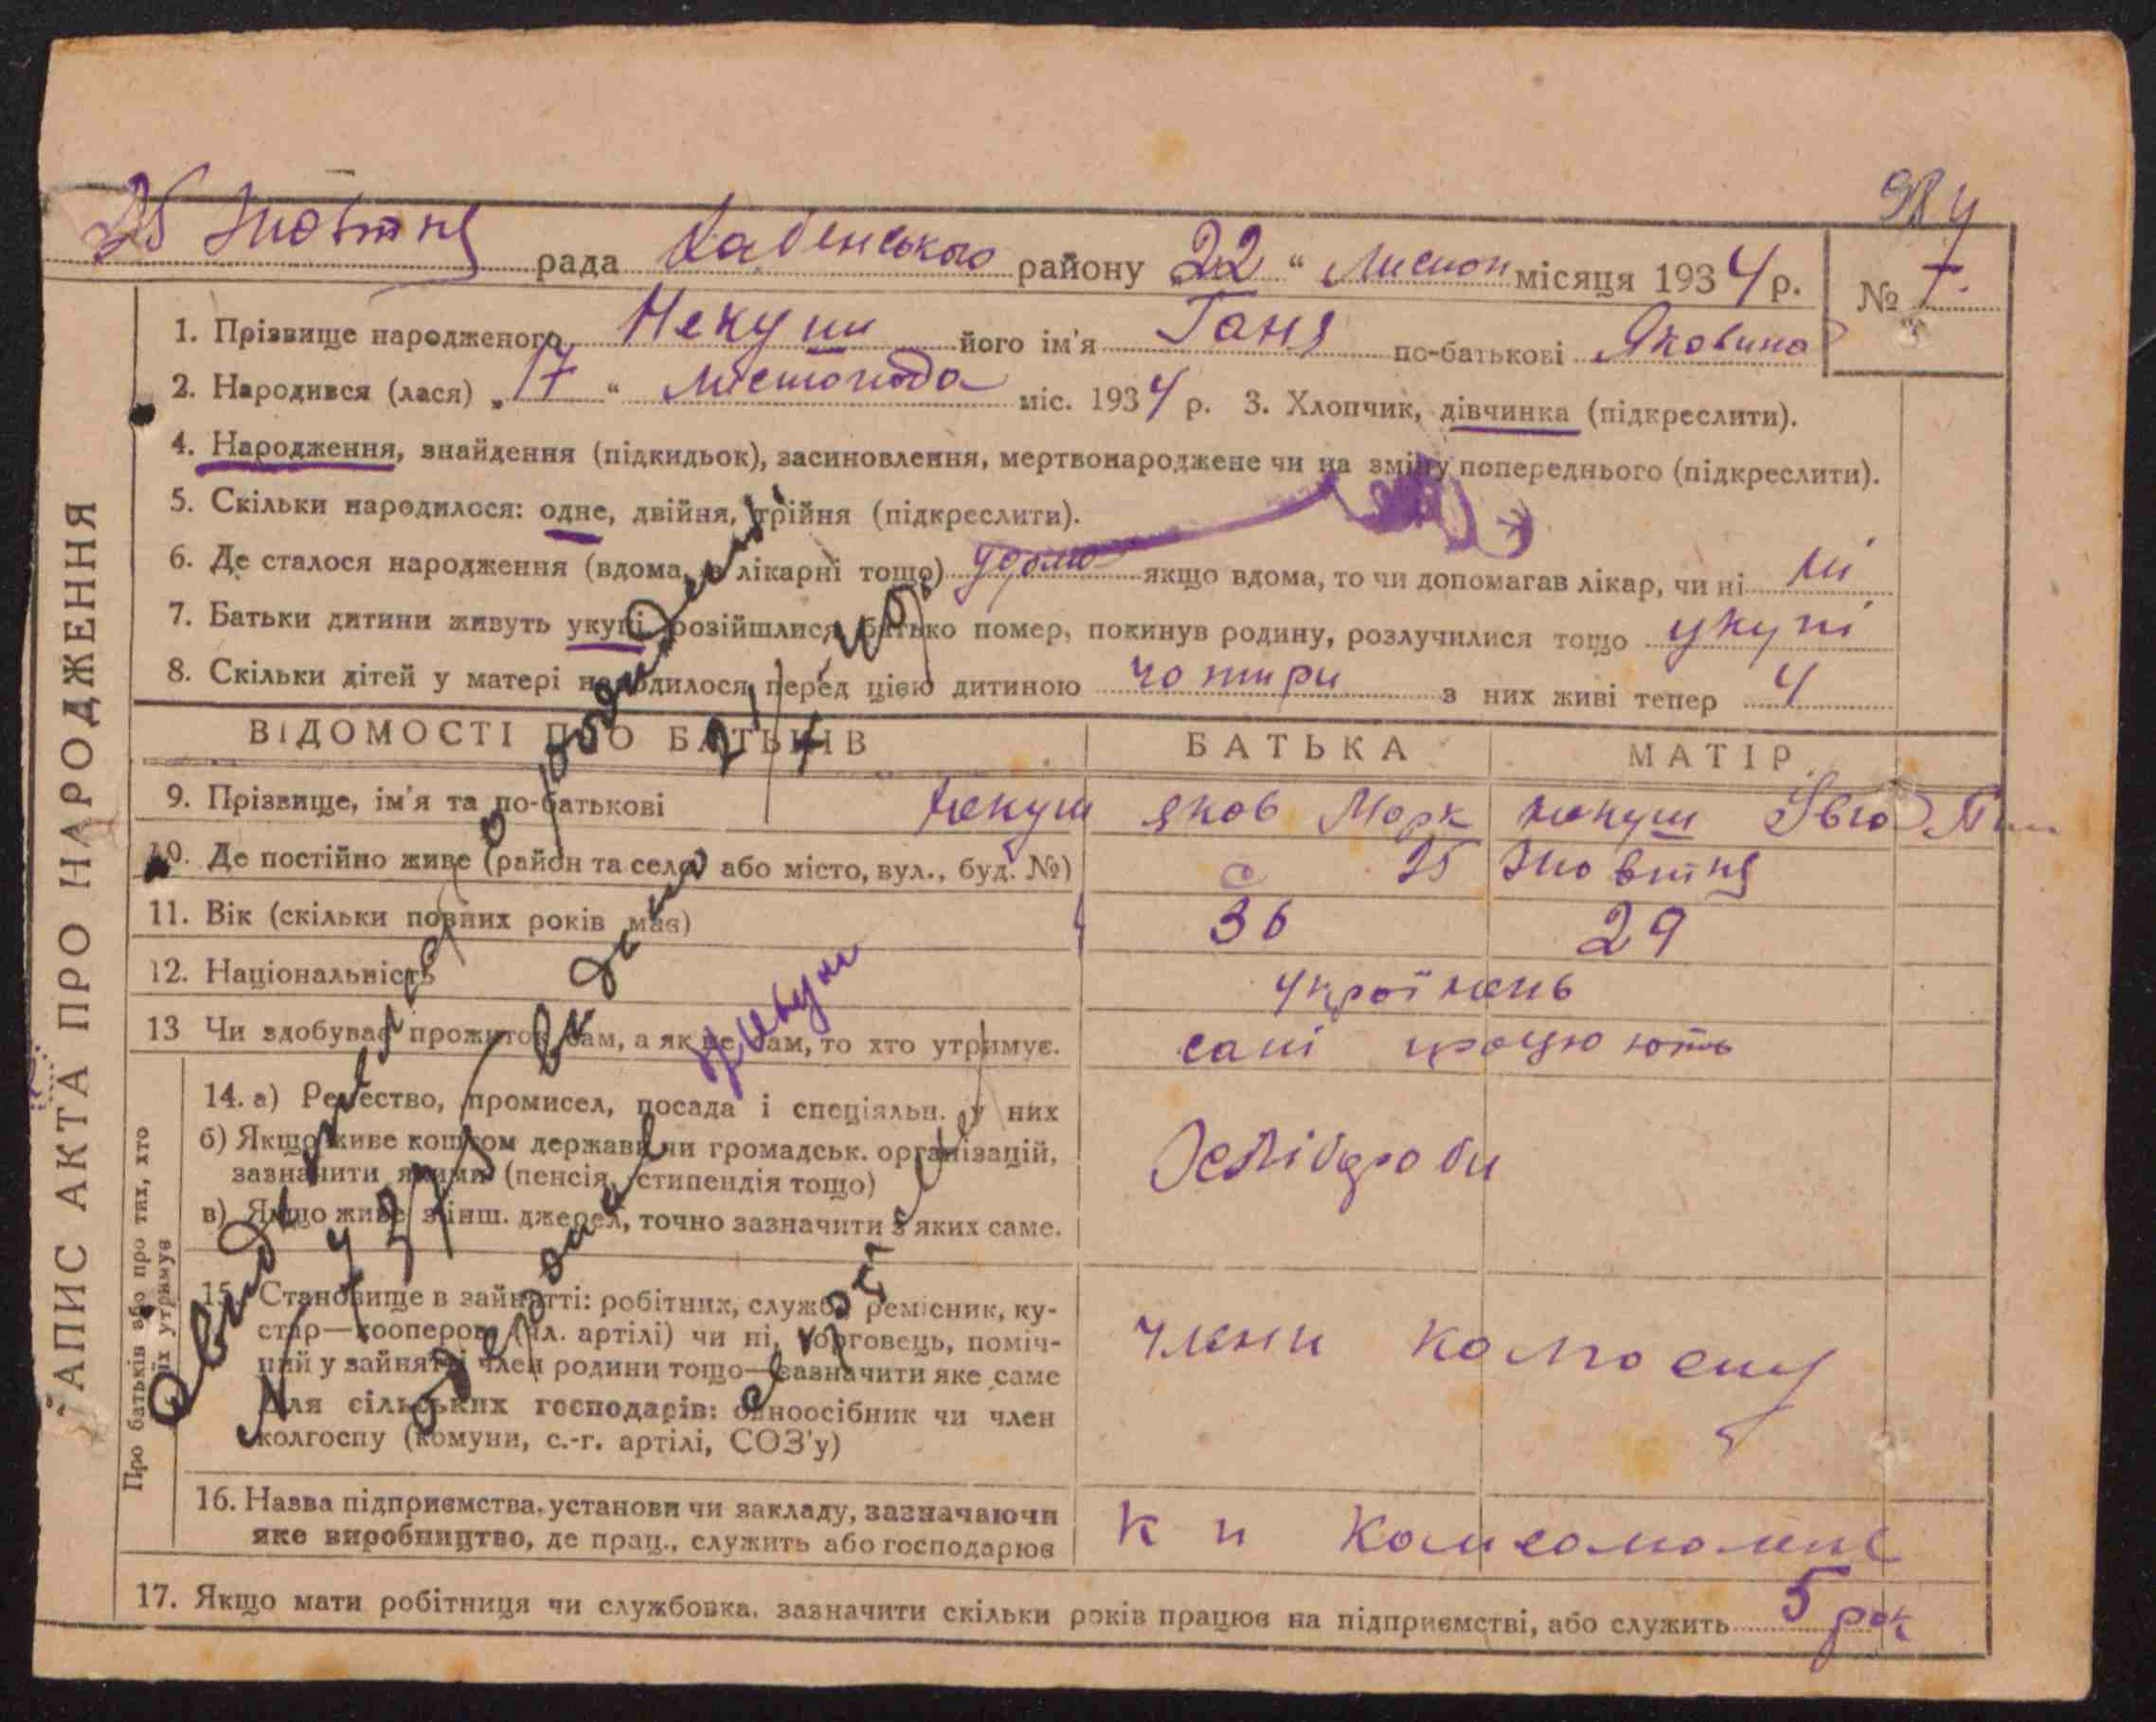 984
25 Жовтня рада Хабенського району 22 " Листоп місяця 1934 р. № 7.
1. Прізвище народженого Некуш його ім'я Ганя по-батькові Яковина
2. Народився (лася) „17" Листопада міс. 1934 р. 3. Хлопчик, дівчинка (підкреслити).
4. Народження, знайдення (підкидьок), засиновлення, мертвонароджене чи на зміну попереднього (підкреслити).
5. Скільки народилося: одне, двійня, трійня (підкреслити).
6. Де сталося народження (вдома, в лікарні тощо) удома якщо вдома, то чи допомагав лікар, чи ні ні
7. Батьки дитини живуть укупі, розійшлися, батько помер, покинув родину, розлучилися тощо укупі
8. Скільки дітей у матері народилося перед цією дитиною чотири з них живі тепер 4
ВІДОМОСТІ ПРО БАТЬКІВ БАТЬКА МАТІР
9. Прізвище, ім'я та по-батькові Некуш Яков Марк Некуш
10. Де постійно живе (район та село або місто, вул., буд. №) с 25 Жовтня
11. Вік (скільки повних років має) 36 29
12. Національність українець
13 Чи здобуває прожиток сам, а як не сам, то хто утримує. самі працюють
14. а) Ремество, промисел, посада і спеціяльн. у них
б) Якщо живе коштом держави чи громадськ. організацій,
зазначити якими (пенсія, стипендія тощо)
в) Якщо живе з інш. джерел, точно зазначити з яких саме.
Хлібороби
15. Становище в зайнятті: робітник, служб. ремісник, ку-
стар—кооперов. (чл. артілі) чи ні, торговець, поміч-
ний у зайнятті член родини тощо—зазначити яке саме
Для сільських господарів: одноосібник чи член
колгоспу (комуни, с.-г. артілі, СОЗ'у)
члени колгоспу
16. Назва підприємства, установи чи закладу, зазначаючи
яке виробництво, де прац., служить або господарює
к Комсомолец
17. Якщо мати робітниця чи службовка, зазначити скільки років працює на підприємстві, або служить 5 рок
ЗАПИС АКТА ПРО НАРОДЖЕННЯ
Про батьків або про тих, хто
їх утримує
о рождении
выдано